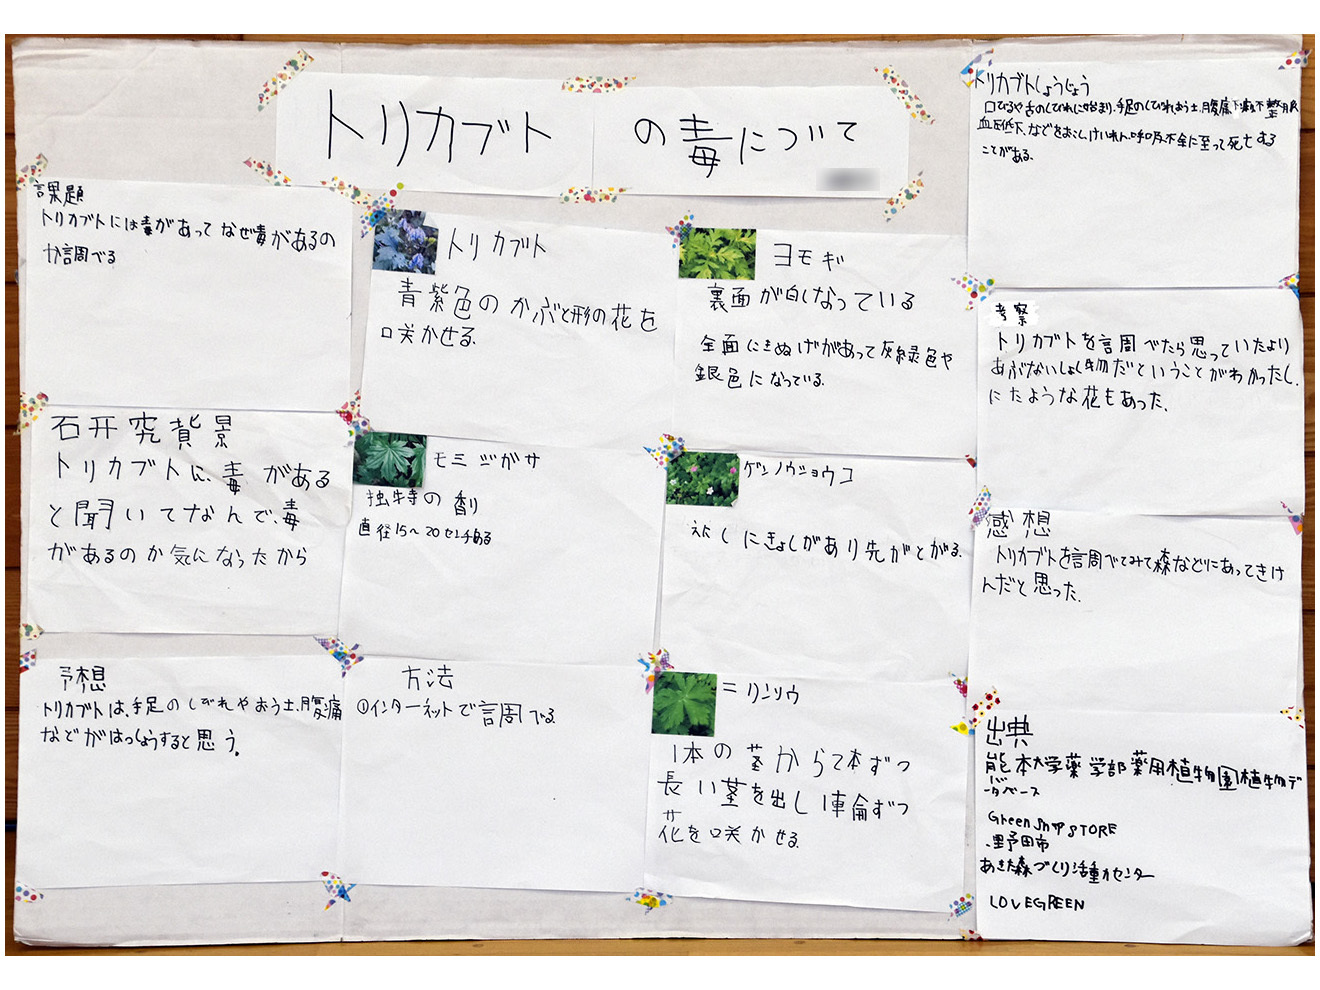 トリカブトの毒について
課題
トリカブトには毒があってなぜ毒があるの
か調べる
研究背景
トリカブトに、毒がある
と聞いてなんで、毒
があるのか気になったから
予想
トリカブトは、手足のしびれやおう土、腹痛
などがはっしょうすると思う。
トリカブト
青紫色のかぶと形の花を
咲かせる。
モミジがサ
独特の香り
直径15〜20センチある
方法
①インターネットで調べる
ヨモギ
裏面が白くなっている
全面にきぬげがあって灰緑色や
銀色になっている。
ゲンノウショウコ
にきょしがあり先がとがる。
ニリンソウ
1本の茎から2本ずつ
長い茎を出し1輪ずつ
花を咲かせる。
トリカブトしょうじょう
口びるや舌のしびれに始まり、手足のしびれ、おう土、腹痛、下痢、不整脈
血圧低下、などをおこし、けいれん、呼吸不全に至って死亡する
ことがある。
考察
トリカブトを調べたら思っていたより
あぶないしょく物だということがわかったし、
にたような花もあった。
感想
トリカブトを調べてみて森などにあってきけ
んだと思った。
出典
熊本大学薬学部薬用植物園植物デ
ータベース
Green Snap STORE
・野田市
あきた森づくり活動センター
LOVEGREEN